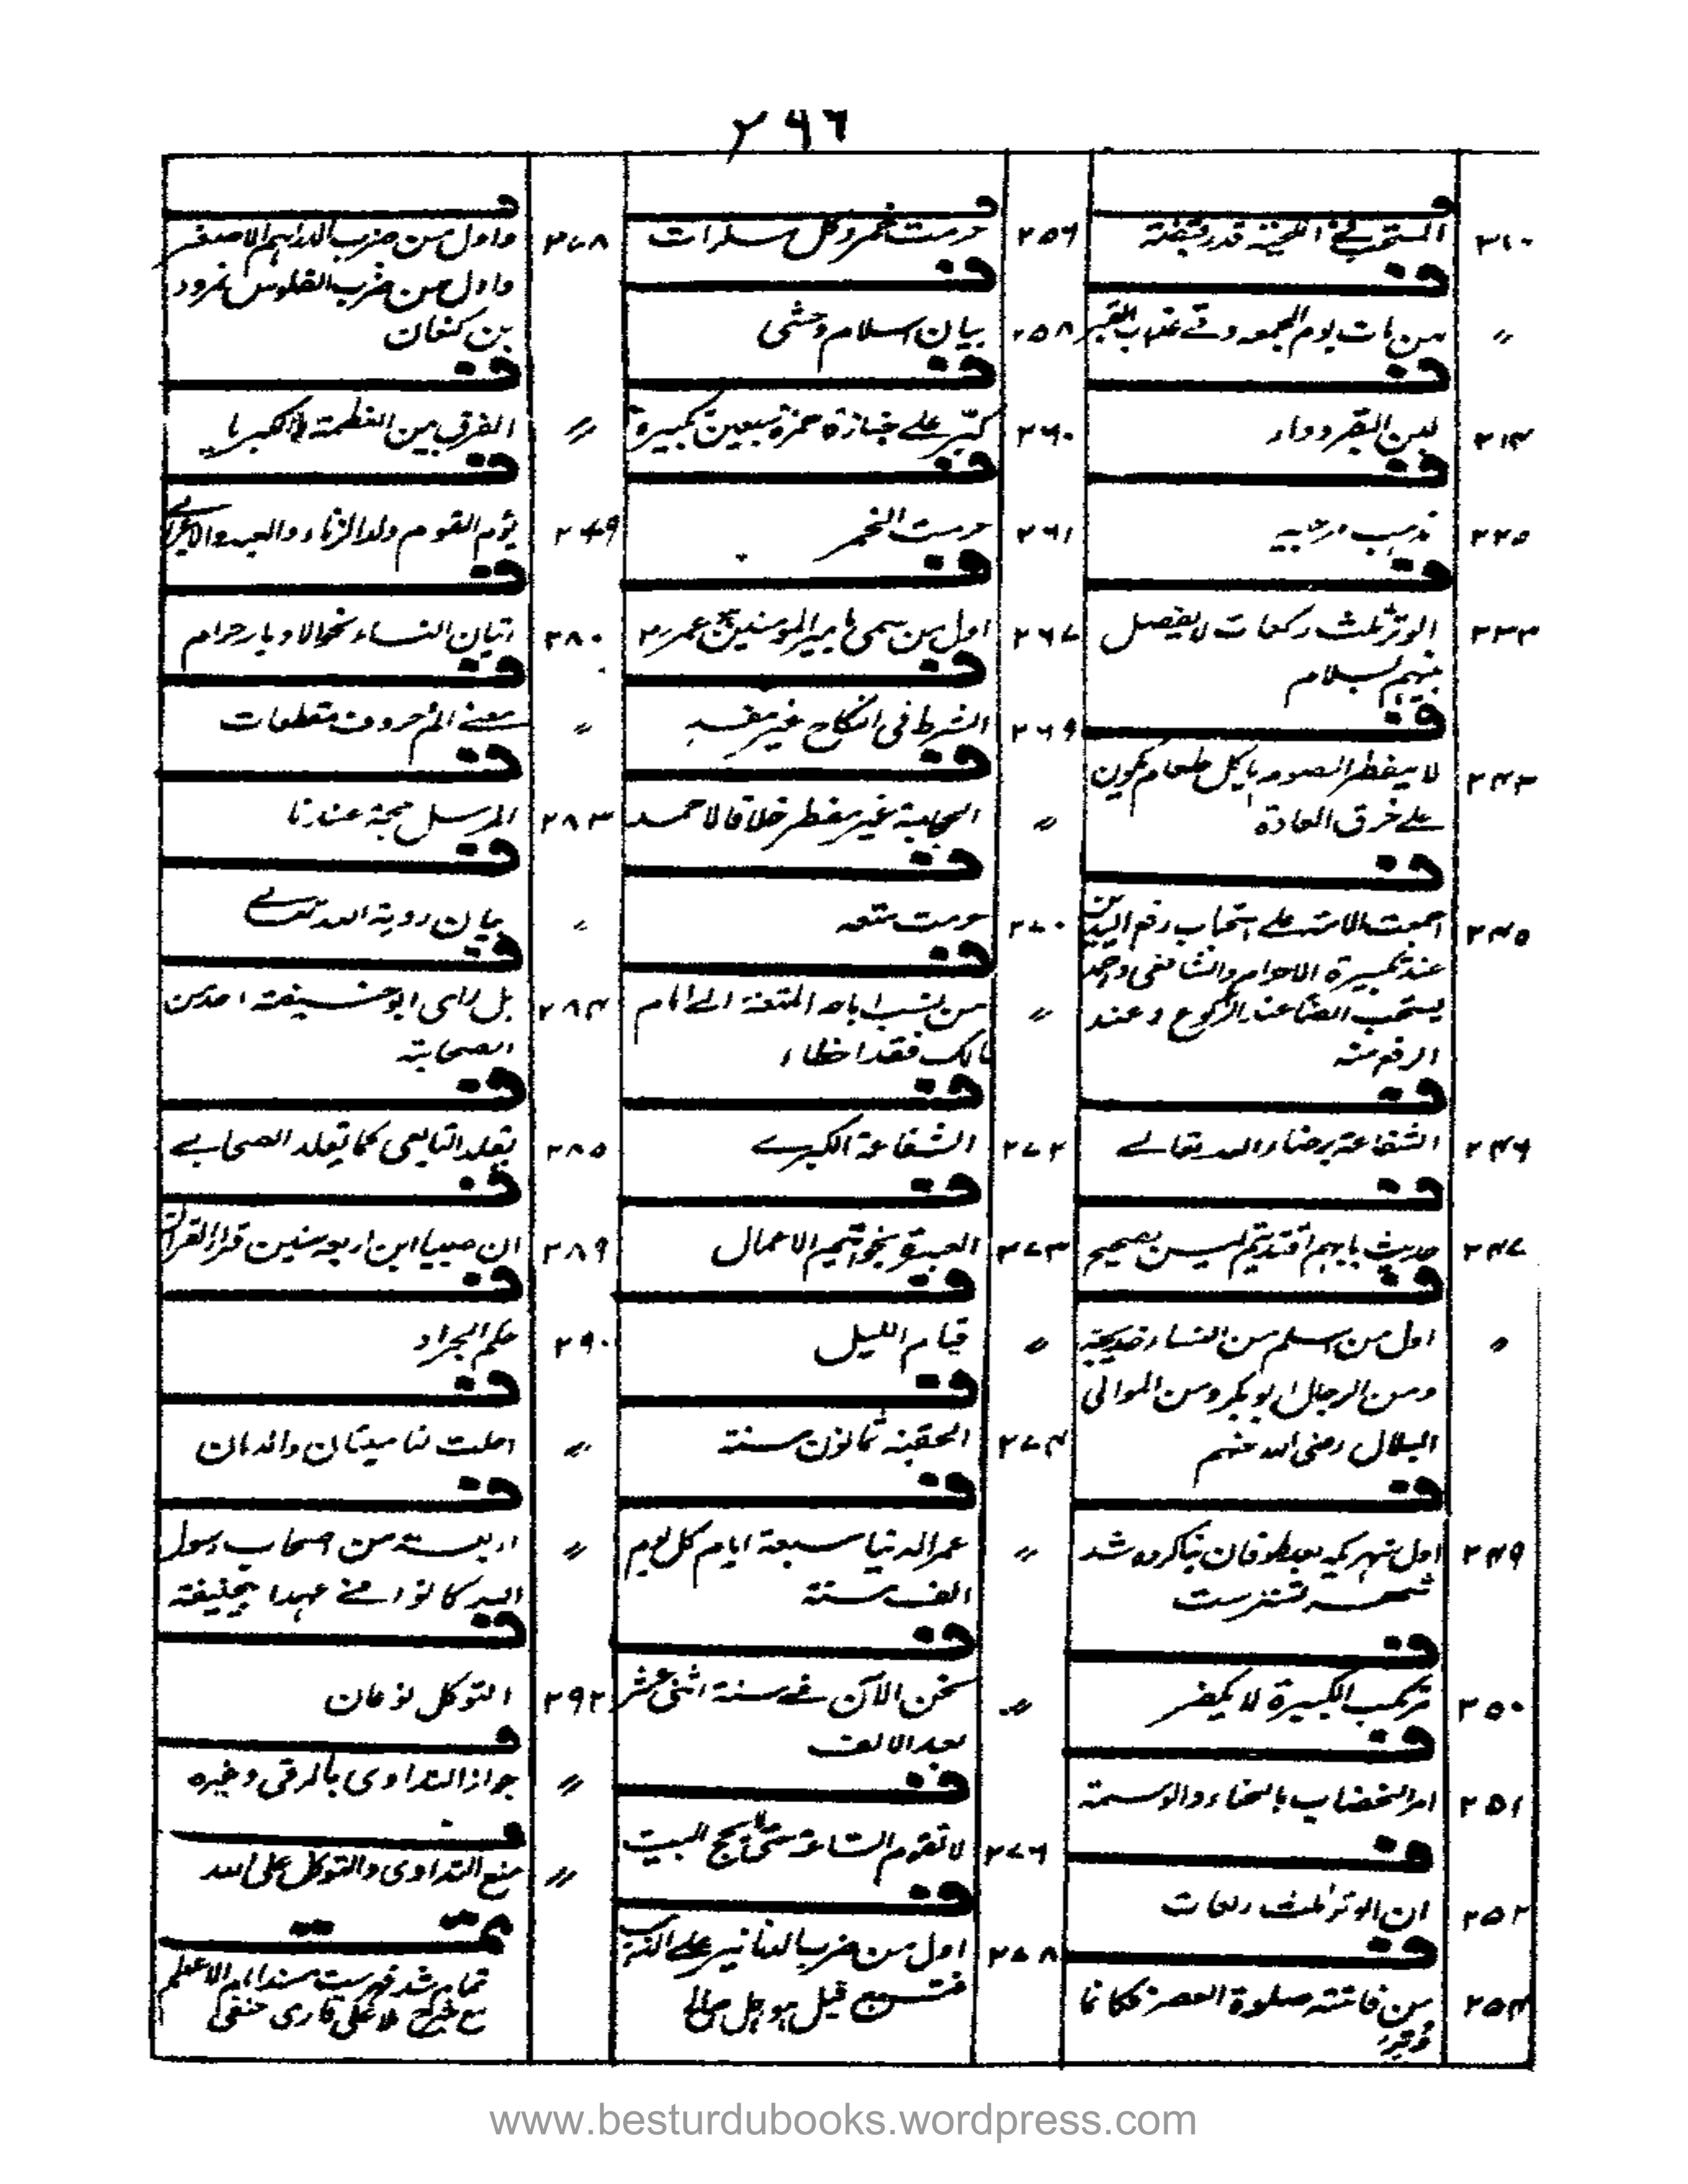 ٢٩٦
ف
٢١٠ المستحب فی اللحیة قدر قبضة
ف
〃 من مات یوم الجمعه وقے عذاب القبر
ف
٢١٤ لبن البقر دواء
ف
٢٢٥ مذہب مرجیه
ف
٢٣٣ الوتر ثلث رکعات لا یفصل
بسلام
ف
٢٤٣ لا یفطر الصوم باکل طعام یکون
علے خرق العادة
ف
٢٤٥ اجمعت الامة علے استحباب رفع الیدین
عند تکبیرة الاحرام والشافعی واحمد
یستحب ایضا عند الرکوع وعند
الرفع منه
ف
٢٤٦ الشفاعة برضاء الله تعالے
ف
٢٤٧ حدیث بایہم اقتدیتم لیس بصحیح
ف
〃 اول من اسلم من النساء خدیجة
ومن الرجال ابوبکر ومن الموالی
البلال رضی الله عنہم
ف
٢٤٩ اول شہر که بعد طوفان بنا کرده شد
تسترست
ف
٢٥٠ مرتکب الکبیرة لا یکفر
ف
٢٥١ امر الخضاب بالحناء والوسمة
ف
٢٥٢ ان الوتر ثلث رکعات
ف
٢٥٤ من فاتته صلوة العصر فکانما
وتر
ف
٢٥٦ حرمت خمر وکل مسکرات
ف
٢٥٨ بیان اسلام وحشی
ف
٢٦٠ کبّر علے جنازة حمزة سبعین تکبیرة
ف
٢٦١ حرمت الخمر
ف
٢٦٧ اول من سمی بامیر المومنین عمر رض
ف
٢٦٩ الشرط فی النکاح غیر مفسد
ف
〃 الحجامة غیر مفطر خلافا لاحمد
ف
٢٧٠ حرمت متعه
ف
〃 من نسب اباحة المتعة الے امام
مالک فقد اخطاء
ف
٢٧٢ الشفاعة الکبرے
ف
٢٧٣ العبرة بخواتیم الاعمال
ف
〃 قیام اللیل
ف
٢٧٤ الحقبة ثمانون سنة
ف
〃 عمر الدنیا سبعة ایام کل یوم
الف سنة
ف
〃 نحن الآن فے سنة اثنی عشر
بعد الالف
ف
٢٧٦ لا تقوم الساعة حتی لا یحج البیت
ف
٢٧٨ اول من ضرب الدنانیر علے
تبع قیل ہو جبل صالح
ف
٢٧٨ واول من ضرب الدراہم الاصغر
واول من ضرب الفلوس نمرود
بن کنعان
ف
〃 الفرق بین العظمة والکبریاء
ف
٢٧٩ یؤم القوم ولد الزناء والعبد والاعرابے
ف
٢٨٠ اتیان النساء نحو الادبار حرام
ف
〃 معنے الم حروف مقطعات
ف
٢٨٣ المرسل حجة عندنا
ف
〃 بیان رویة الله تعالے
ف
٢٨٤ بل رای ابو حنیفة احد من
الصحابة
ف
٢٨٥ یقلد التابعی کما یقلد الصحابے
ف
٢٨٩ ان صبیا ابن اربعه سنین قرا القرآن
ف
٢٩٠ حکم الجراد
ف
〃 احلت لنا میتتان والدمان
ف
〃 اربعة من اصحاب رسول
الله کانوا فے عہد ابیحنیفة
ف
٢٩٢ التوکل نوعان
ف
〃 جواز التداوی بالرقی وغیره
ف
〃 منع التداوی والتوکل علی الله
تمت
تمام شد فہرست مسند امام الاعظم
مع شرح ملا علی قاری حنفی
www.besturdubooks.wordpress.com